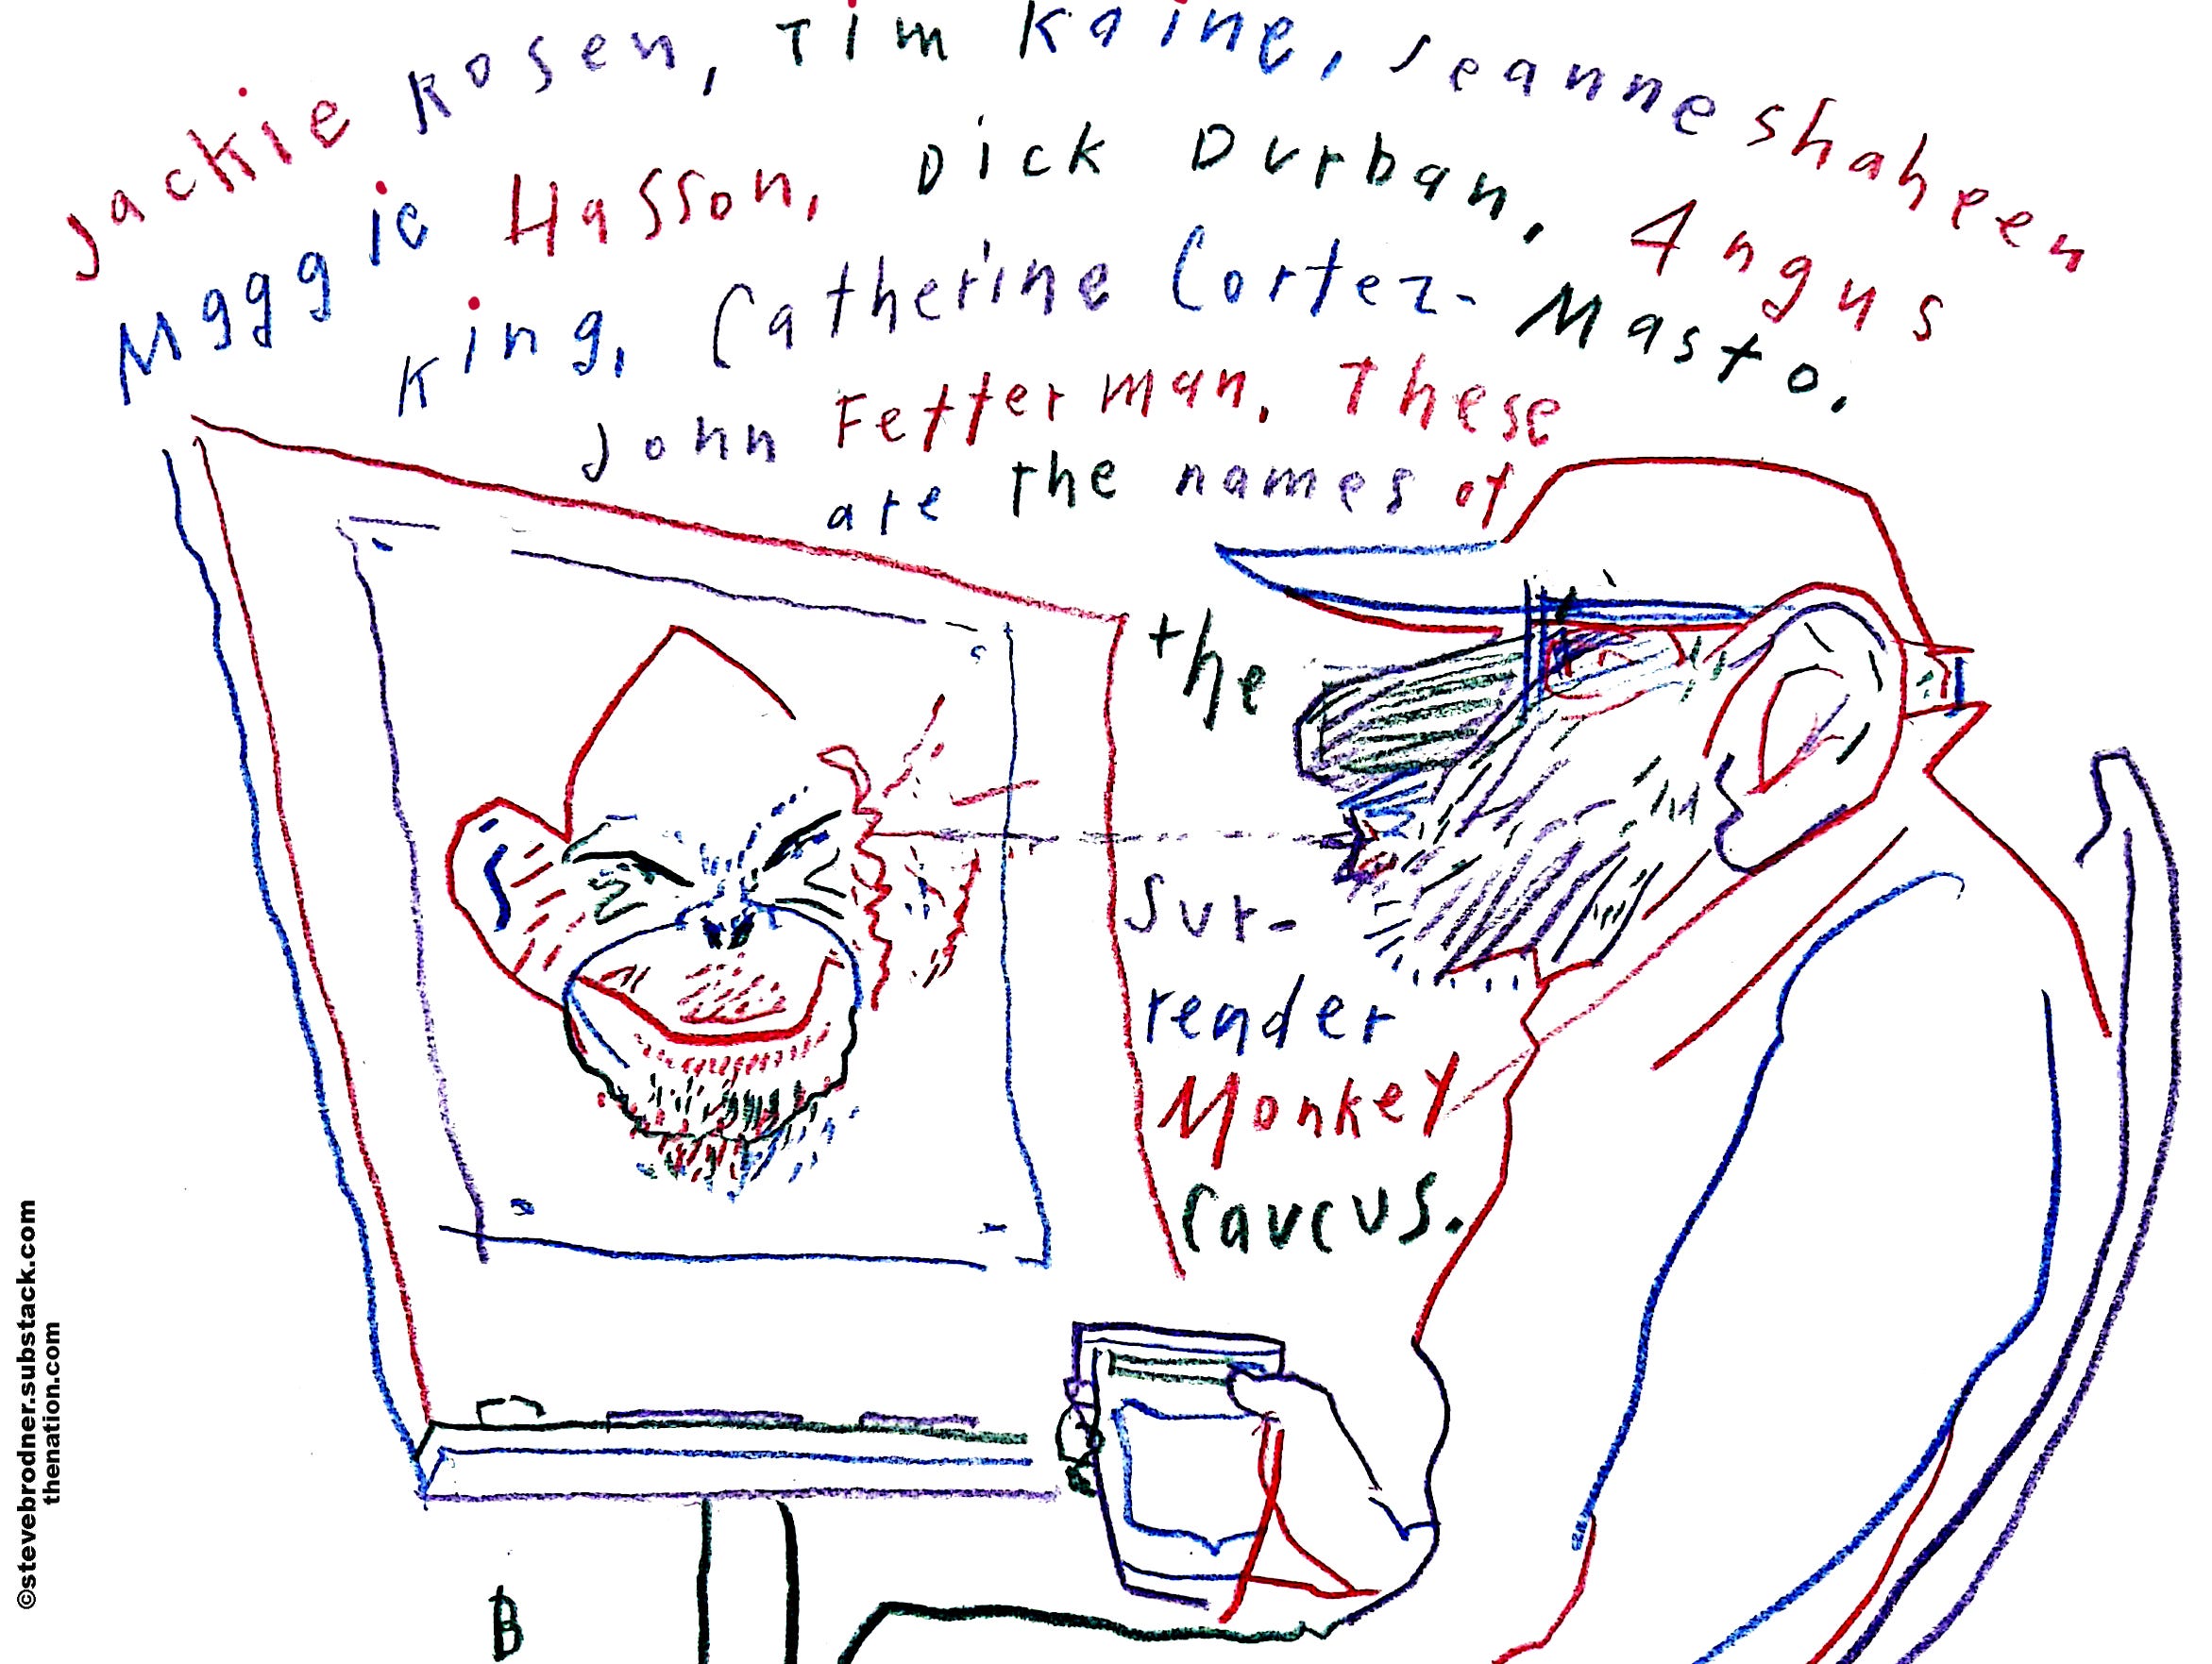 Jackie Rosen, Tim Kaine, Jeanne Shaheen
Maggie Hasson, Dick Durban, Angus
King, Catherine Cortez-Masto.
John Fetterman. These
are the names of
the
Sur-
render
Monkey
Caucus.
B
©stevebrodner.substack.com
thenation.com